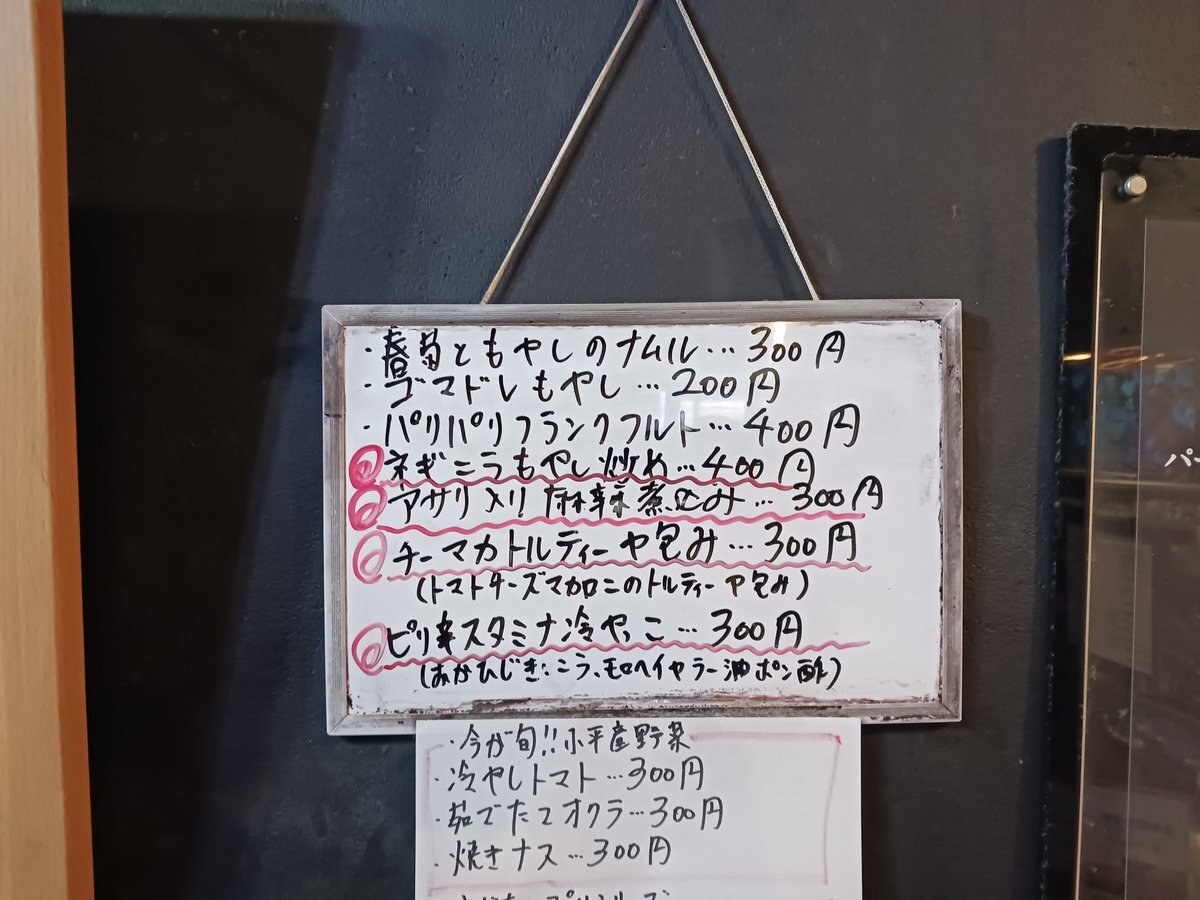 ・春菊ともやしのナムル…300円
・ゴマドレもやし…200円
・パリパリフランクフルト…400円
ネギニラもやし炒め…400円
アサリ入り麻辣煮込み…300円
チーマカトルティーヤ包み…300円
(トマトチーズマカロニのトルティーヤ包み)
ピリ辛スタミナ冷やっこ…300円
(おかひじき、ニラ、モロヘイヤラー油ポン酢)
・今が旬!!小平産野菜
・冷やしトマト…300円
・茹でたてオクラ…300円
・焼きナス…300円
パー